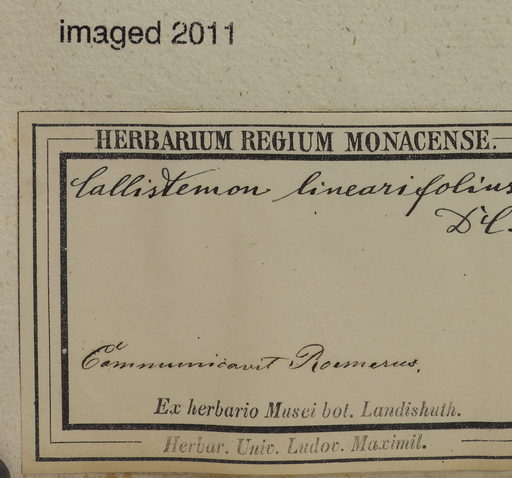 imaged 2011
HERBARIUM REGIUM MONACENSE.
Callistemon linearifolius
DC.
Communicavit Roemerus.
Ex herbario Musei bot. Landishuth.
Herbar. Univ. Ludov. Maximil.